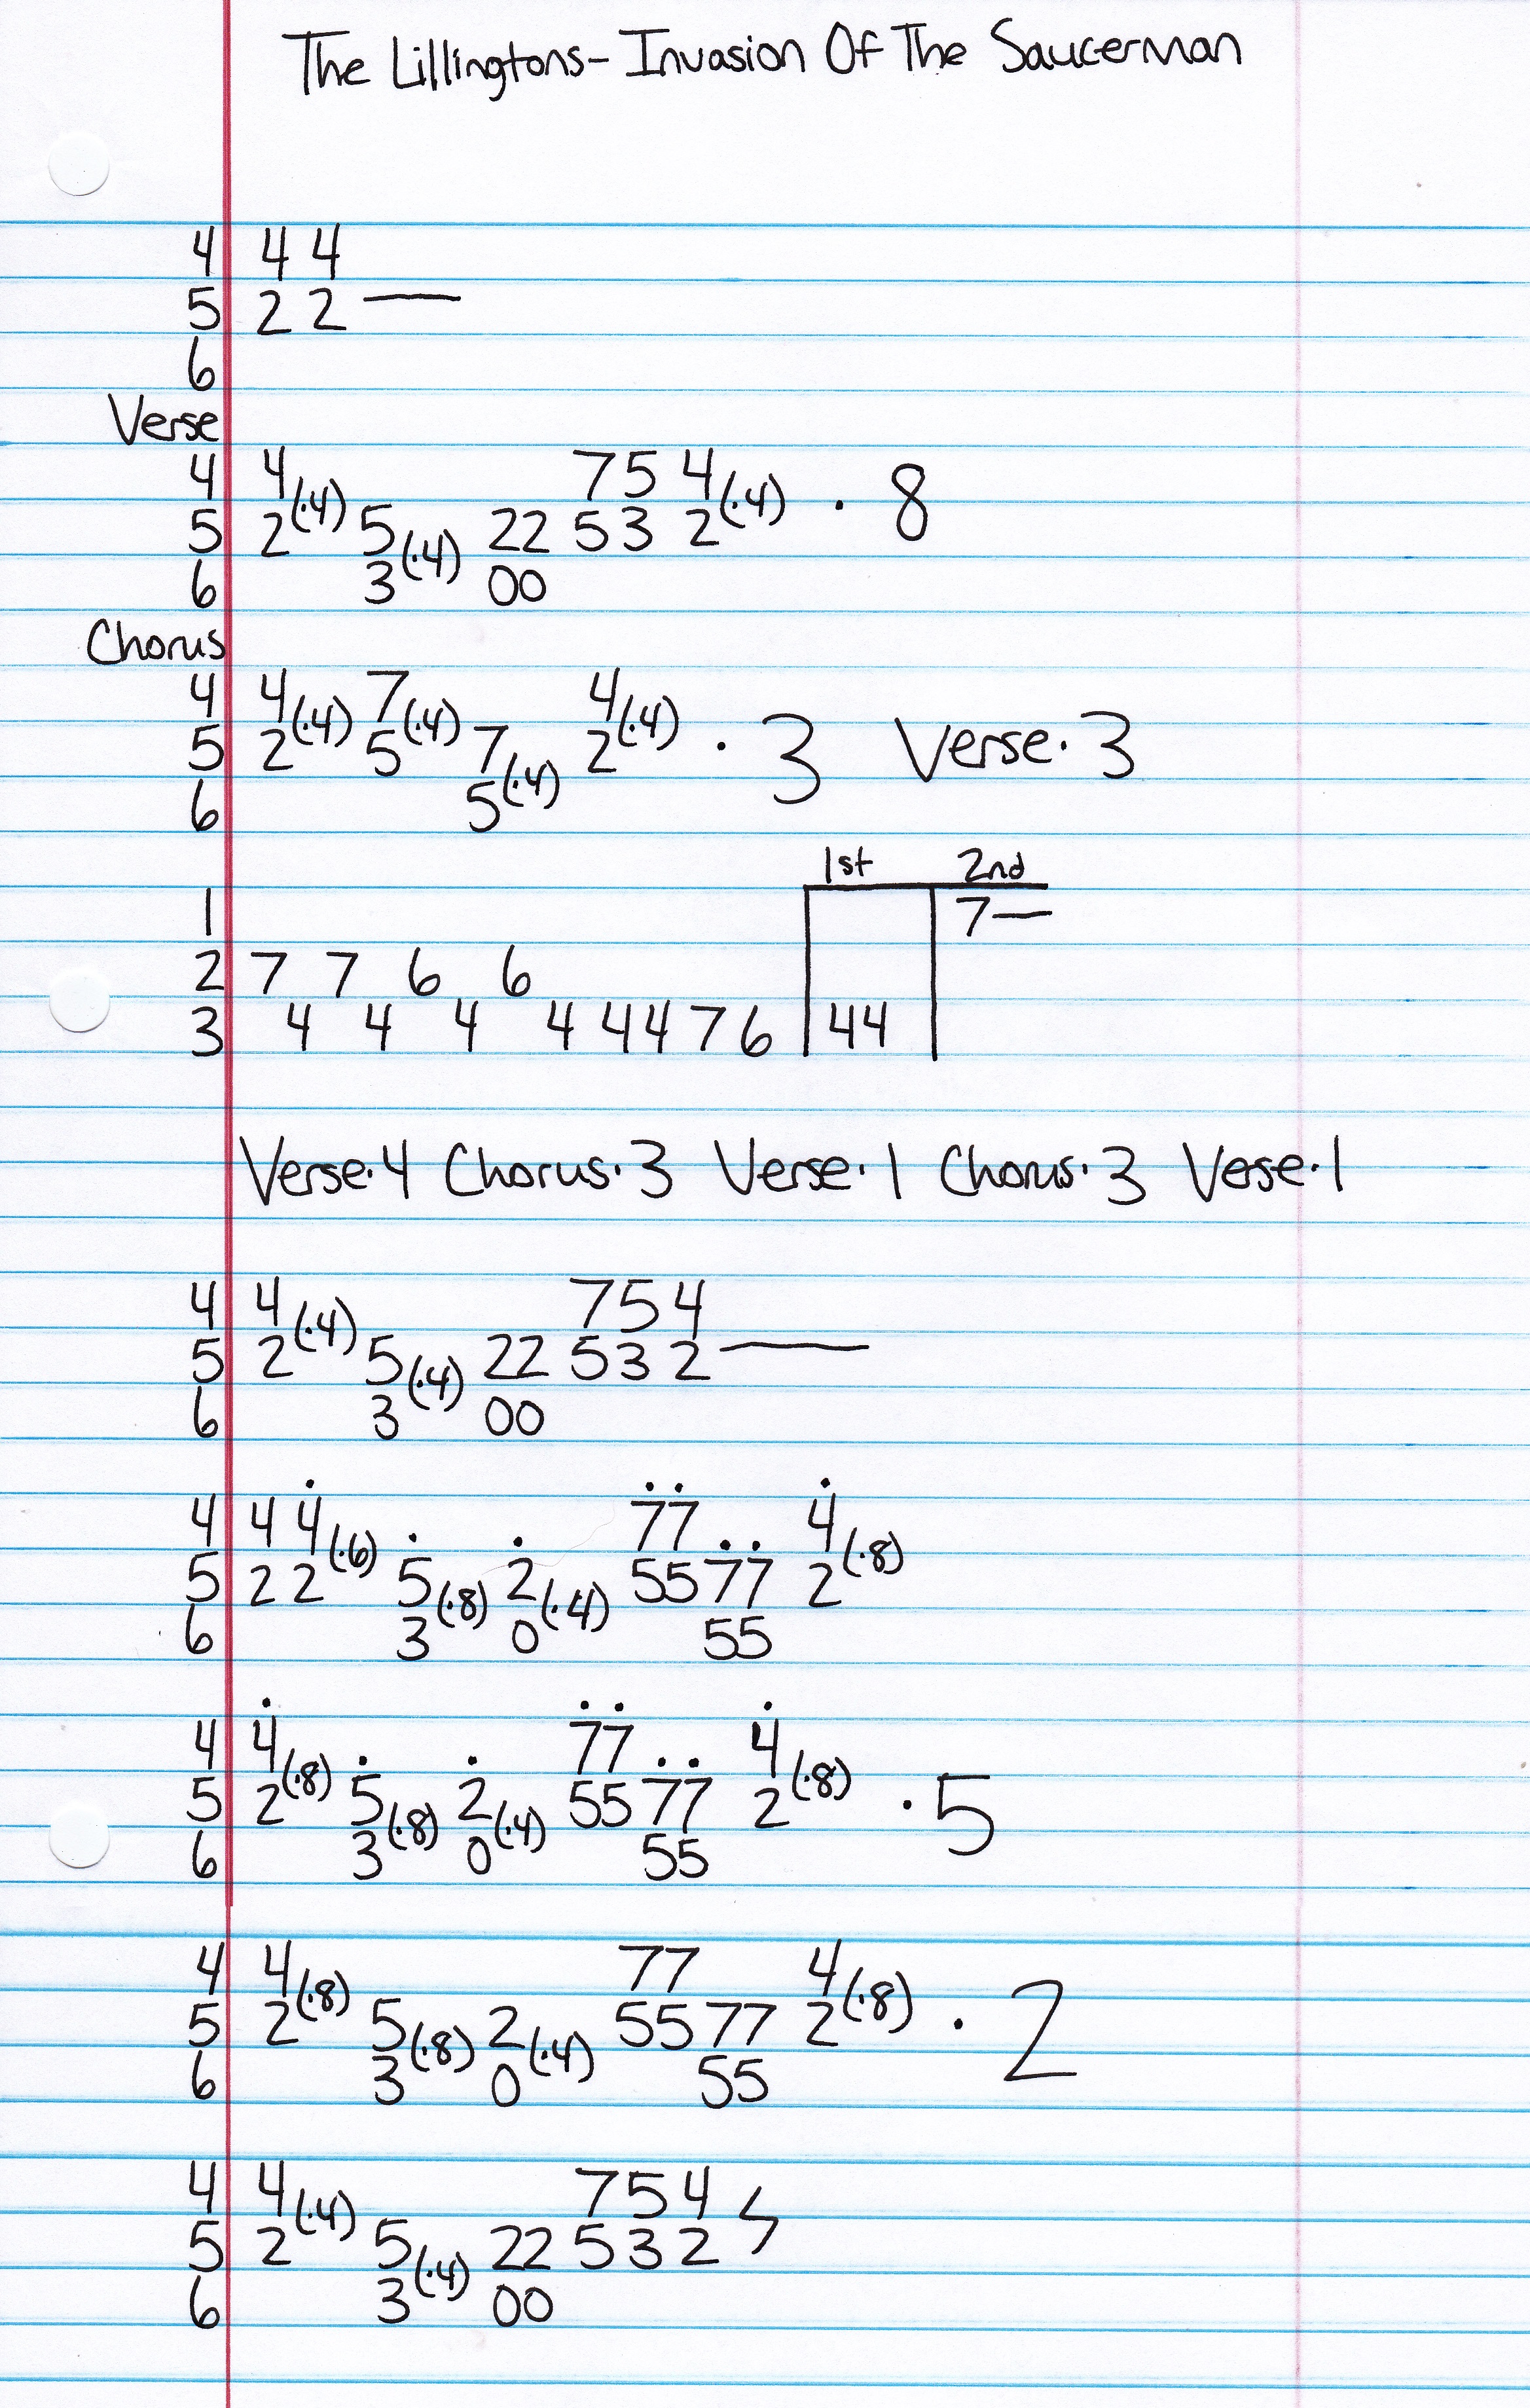 The Lillingtons- Invasion Of The Saucerman
4 4 4
5 2 2 —
6
Verse
4 4(·4) 7 5 4(·4) · 8
5 2 5(·4) 22 5 3 2
6 3 00
Chorus
4 4(·4) 7(·4) 4(·4) · 3 Verse· 3
5 2 5 7(·4) 2
6 5
1st 2nd
1 7—
2 7 7 6 6
3 4 4 4 4 4 4 7 6 44
Verse·4 Chorus·3 Verse·1 Chorus·3 Verse·1
4 4(·4) 7 5 4
5 2 5(·4) 22 5 3 2 —
6 3 00
4 4 4̇(·6) 7̇7̇ 4̇(·8)
5 2 2 5̇(·8) 2̇(·4) 55 7̇7̇ 2
6 3 0 55
4 4̇(·8) 7̇7̇ 4̇(·8) · 5
5 2 5̇(·8) 2̇(·4) 55 7̇7̇ 2
6 3 0 55
4 4(·8) 77 4(·8) · 2
5 2 5(·8) 2(·4) 55 77 2
6 3 0 55
4 4(·4) 7 5 4
5 2 5(·4) 22 5 3 2
6 3 00